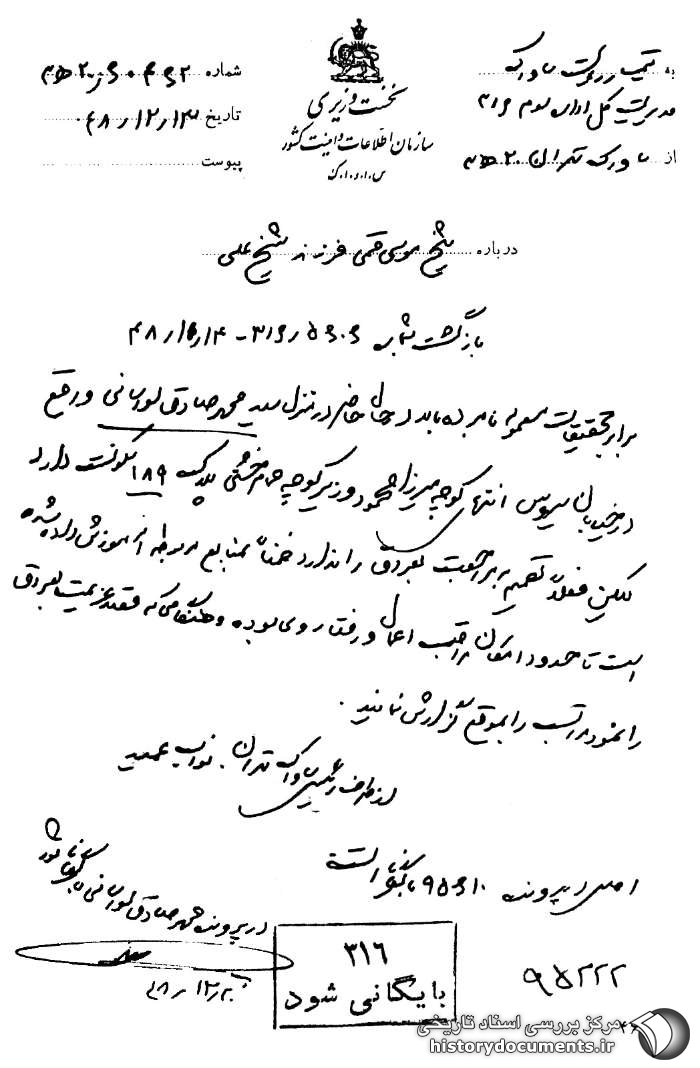 به تیمسار ریاست ساواک
مدیریت کل اداره سوم ۳۱۶
از ساواک تهران ۲۰ ه‍ ۳
نخست وزیری
سازمان اطلاعات و امنیت کشور
س.ا.و.ا.ک
شماره
تاریخ ۴۸/۱۲/۱۳
پیوست
درباره شیخ موسی قمی فرزند شیخ علی
بازگشت بشماره
برابر تحقیقات معموله نامبرده بالا در حال حاضر در منزل سید محمد صادق لواسانی واقع
در خیابان سیروس انتهای کوچه میرزا محمود وزیر کوچه حمام خشتی پلاک ۱۸۹ سکونت دارد
لیکن فعلاً تصمیم به مراجعت بعراق را ندارد ضمناً بمنابع مربوطه آموزش داده شده
است تا حدود امکان مراقب اعمال و رفتار وی بوده و هنگامی که قصد عزیمت بعراق
را نمود مراتب را بموقع گزارش نمایند.
از طرف رئیس ساواک تهران. نواب عمید
اصل در پرونده ۹۵۶۱۰ بایگانی است
در پرونده محمد صادق لواسانی بایگانی شود
۴۸/۱۲/۲۰
۳۱۶
بایگانی شود
۹۵۲۲۲
مرکز بررسی اسناد تاریخی
historydocuments.ir